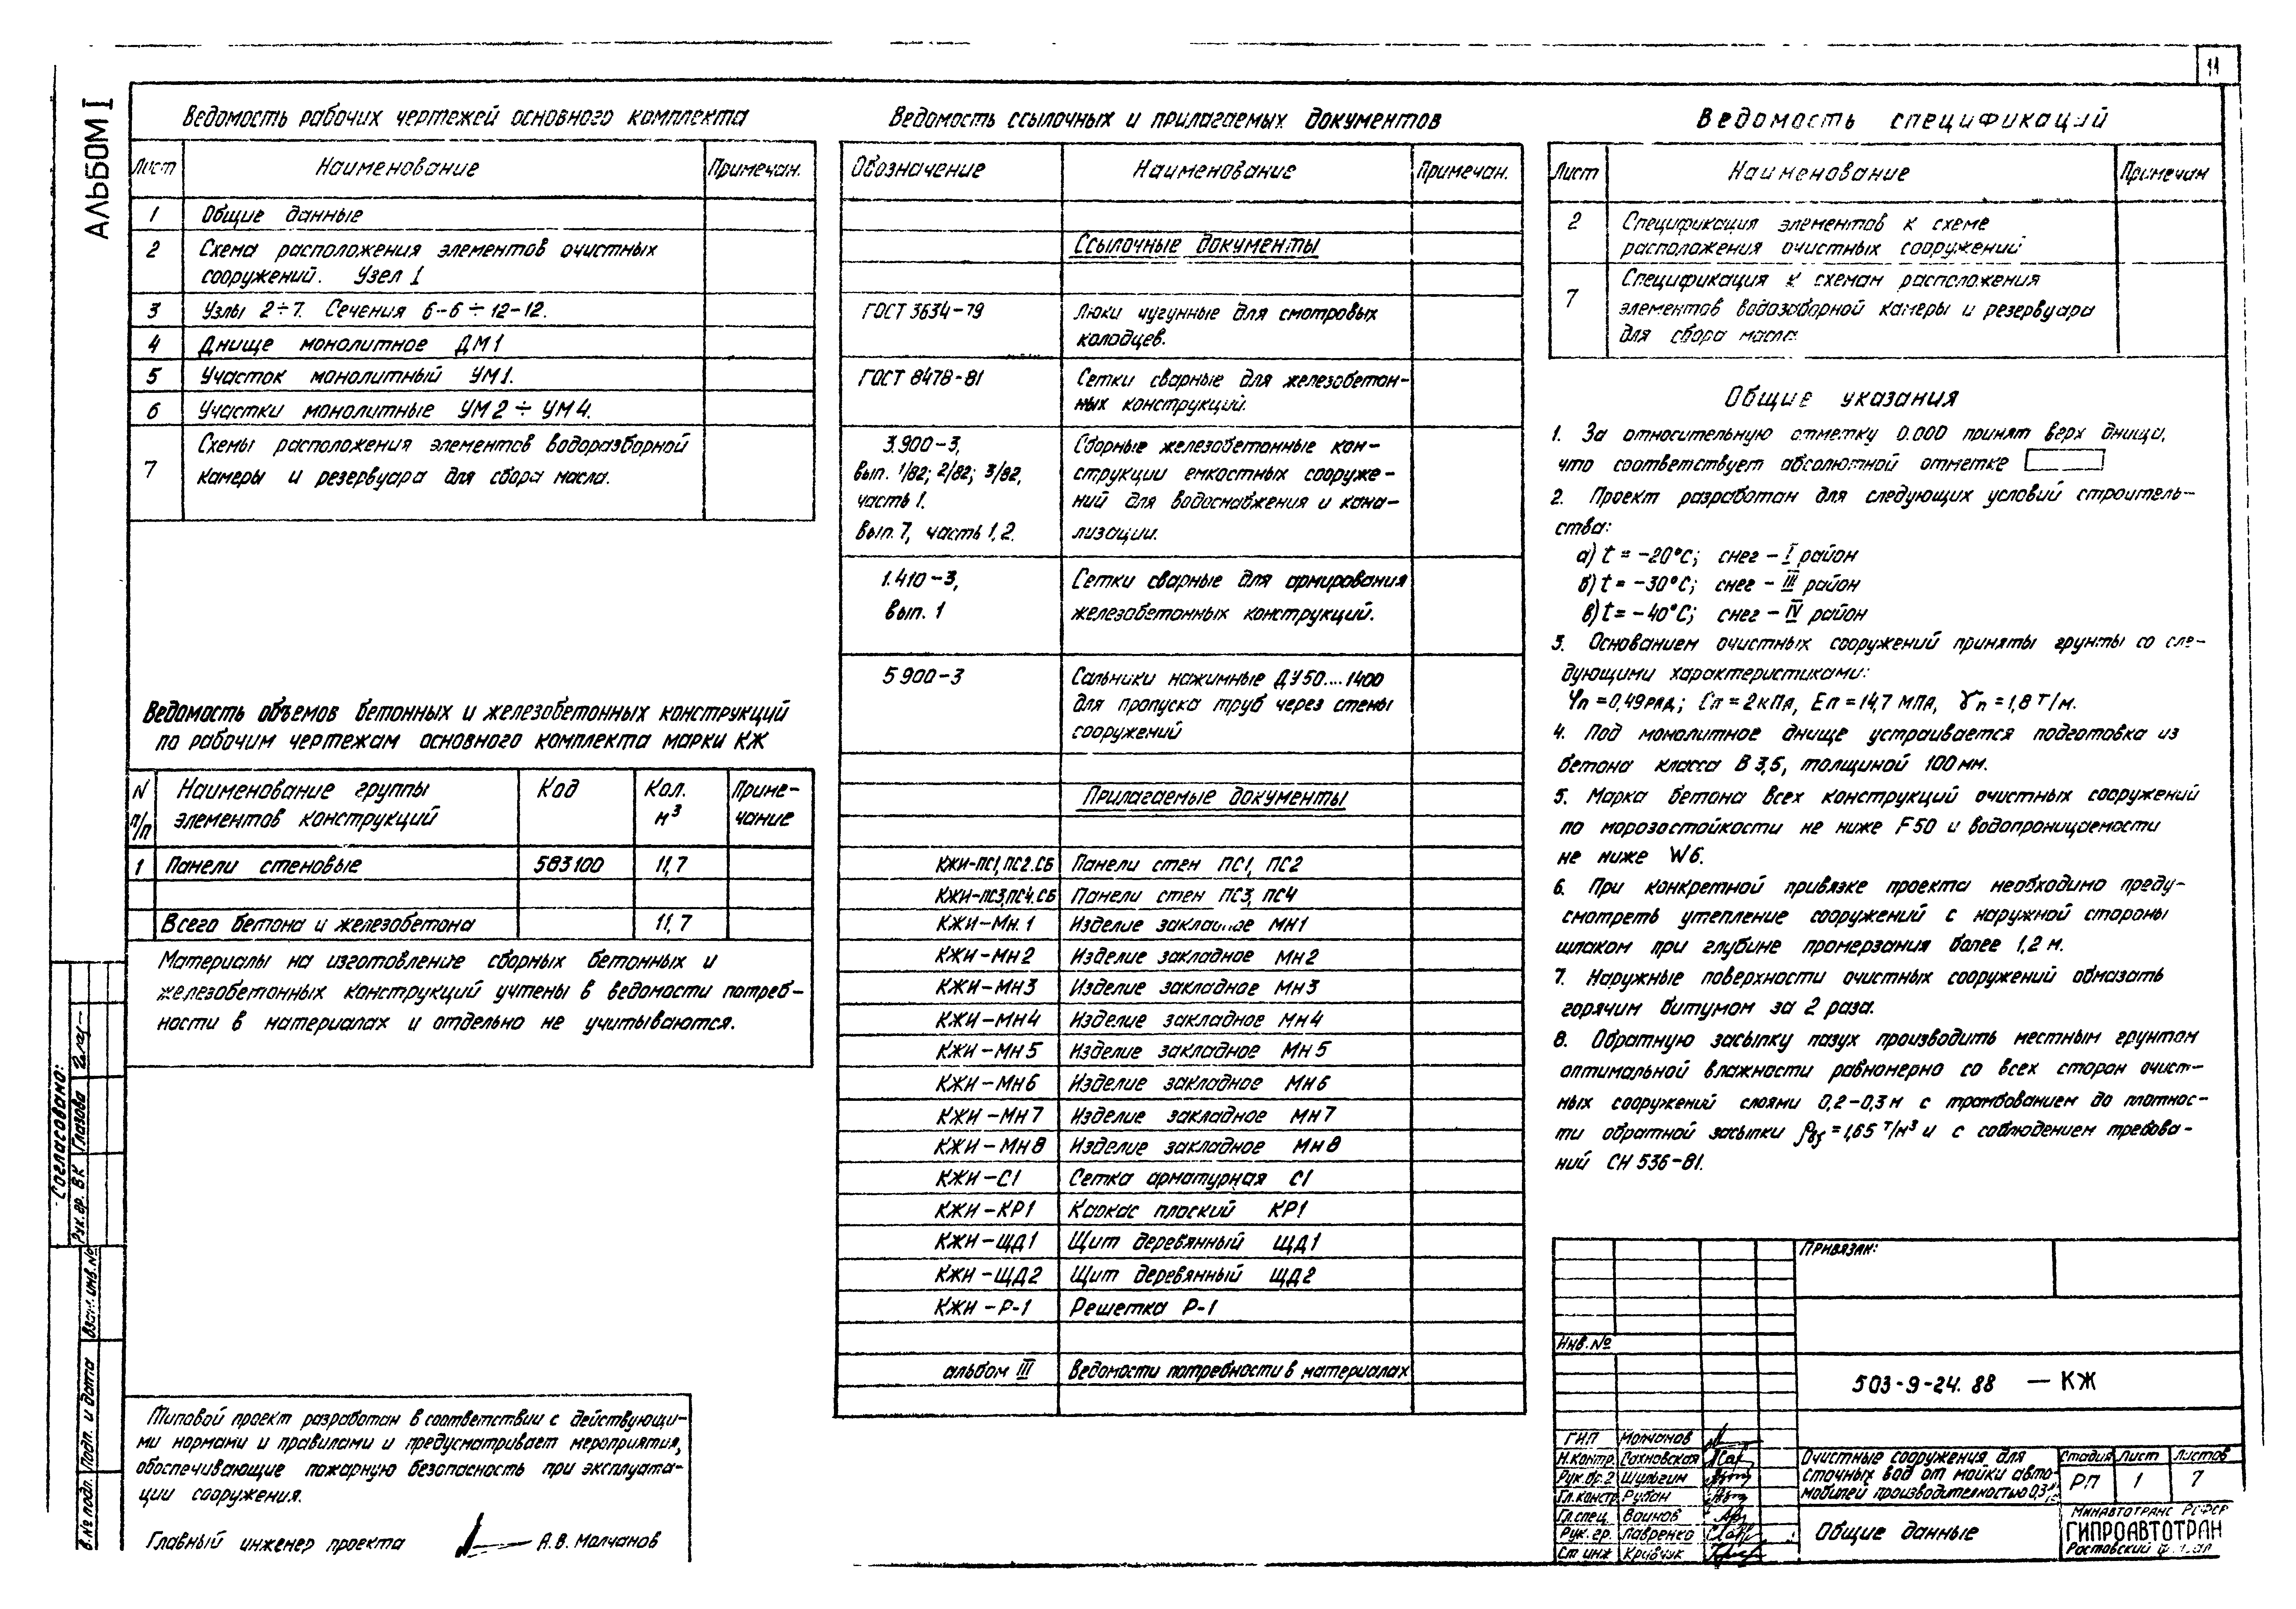 11
АЛЬБОМ I
Ведомость рабочих чертежей основного комплекта
Лист Наименование Примечан.
1 Общие данные
2 Схема расположения элементов очистных
сооружений. Узел 1
3 Узлы 2÷7. Сечения 6-6÷12-12.
4 Днище монолитное ДМ1
5 Участок монолитный УМ1.
6 Участки монолитные УМ2÷УМ4.
7 Схемы расположения элементов водоразборной
камеры и резервуара для сбора масла.
Ведомость объемов бетонных и железобетонных конструкций
по рабочим чертежам основного комплекта марки КЖ
N Наименование группы Код Кол. Приме-
п/п элементов конструкций м³ чание
1 Панели стеновые 583100 11,7
Всего бетона и железобетона 11,7
Материалы на изготовление сборных бетонных и
железобетонных конструкций учтены в ведомости потреб-
ности в материалах и отдельно не учитываются.
Типовой проект разработан в соответствии с действующи-
ми нормами и правилами и предусматривает мероприятия,
обеспечивающие пожарную безопасность при эксплуата-
ции сооружения.
Главный инженер проекта А.В. Молчанов
Ведомость ссылочных и прилагаемых документов
Обозначение Наименование Примечан.
Ссылочные документы
ГОСТ 3634-79 Люки чугунные для смотровых
колодцев.
ГОСТ 8478-81 Сетки сварные для железобетон-
ных конструкций.
3.900-3, Сборные железобетонные кон-
вып. 1/82; 2/82; 3/82, струкции емкостных сооруже-
часть 1. ний для водоснабжения и кана-
вып. 7, часть 1,2. лизации.
1.410-3, Сетки сварные для армирования
вып. 1 железобетонных конструкций.
5 900-3 Сальники нажимные ДУ50....1400
для пропуска труб через стены
сооружений
Прилагаемые документы
КЖИ-ПС1, ПС2.СБ Панели стен ПС1, ПС2
КЖИ-ПС3,ПС4.СБ Панели стен ПС3, ПС4
КЖИ-Мн.1 Изделие закладное МН1
КЖИ-Мн2 Изделие закладное Мн2
КЖИ-Мн3 Изделие закладное Мн3
КЖИ-Мн4 Изделие закладное Мн4
КЖИ-Мн5 Изделие закладное Мн5
КЖИ-Мн6 Изделие закладное Мн6
КЖИ-Мн7 Изделие закладное Мн7
КЖИ-Мн8 Изделие закладное Мн8
КЖИ-С1 Сетка арматурная С1
КЖИ-КР1 Каркас плоский КР1
КЖИ-ЩД1 Щит деревянный ЩД1
КЖИ-ЩД2 Щит деревянный ЩД2
КЖИ-Р-1 Решетка Р-1
альбом III Ведомости потребности в материалах
Ведомость спецификаций
Лист Наименование Примечан
2 Спецификация элементов к схеме
расположения очистных сооружений
7 Спецификация к схемам расположения
элементов водозаборной камеры и резервуара
для сбора масла.
Общие указания
1. За относительную отметку 0.000 принят верх днища,
что соответствует абсолютной отметке
2. Проект разработан для следующих условий строитель-
ства:
а) t = -20°С; снег - I район
б) t = -30°С; снег - III район
в) t = -40°С; снег - IV район
3. Основанием очистных сооружений приняты грунты со сле-
дующими характеристиками:
φп = 0,49рад; Сп = 2кПа, Еп = 14,7 МПа, γп = 1,8 Т/м.
4. Под монолитное днище устраивается подготовка из
бетона класса В 3,5, толщиной 100 мм.
5. Марка бетона всех конструкций очистных сооружений
по морозостойкости не ниже F50 и водопроницаемости
не ниже W6.
6. При конкретной привязке проекта необходимо преду-
смотреть утепление сооружений с наружной стороны
шлаком при глубине промерзания более 1,2 м.
7. Наружные поверхности очистных сооружений обмазать
горячим битумом за 2 раза.
8. Обратную засыпку пазух производить местным грунтом
оптимальной влажности равномерно со всех сторон очист-
ных сооружений слоями 0,2-0,3м с трамбованием до плотнос-
ти обратной засыпки = 1,65 т/м³ и с соблюдением требова-
ний СН 536-81.
Привязан:
Инв.№
503-9-24.88 - КЖ
ГИП Молчанов
Н.контр. Сахновская
Рук.бр.2 Шульгин
Гл.констр Рубан
Гл.спец Воинов
Рук.гр. Лавренко
Ст инж Кравчук
Очистные сооружения для
сточных вод от мойки авто-
мобилей производительностью 0,3
Стадия Лист Листов
РП 1 7
Общие данные
Минавтотранс РСФСР
ГИПРОАВТОТРАН
Ростовский
Согласовано:
Рук.гр. ВК Глазова
Взам. инв.№
Подп. и дата
в.№ подл.